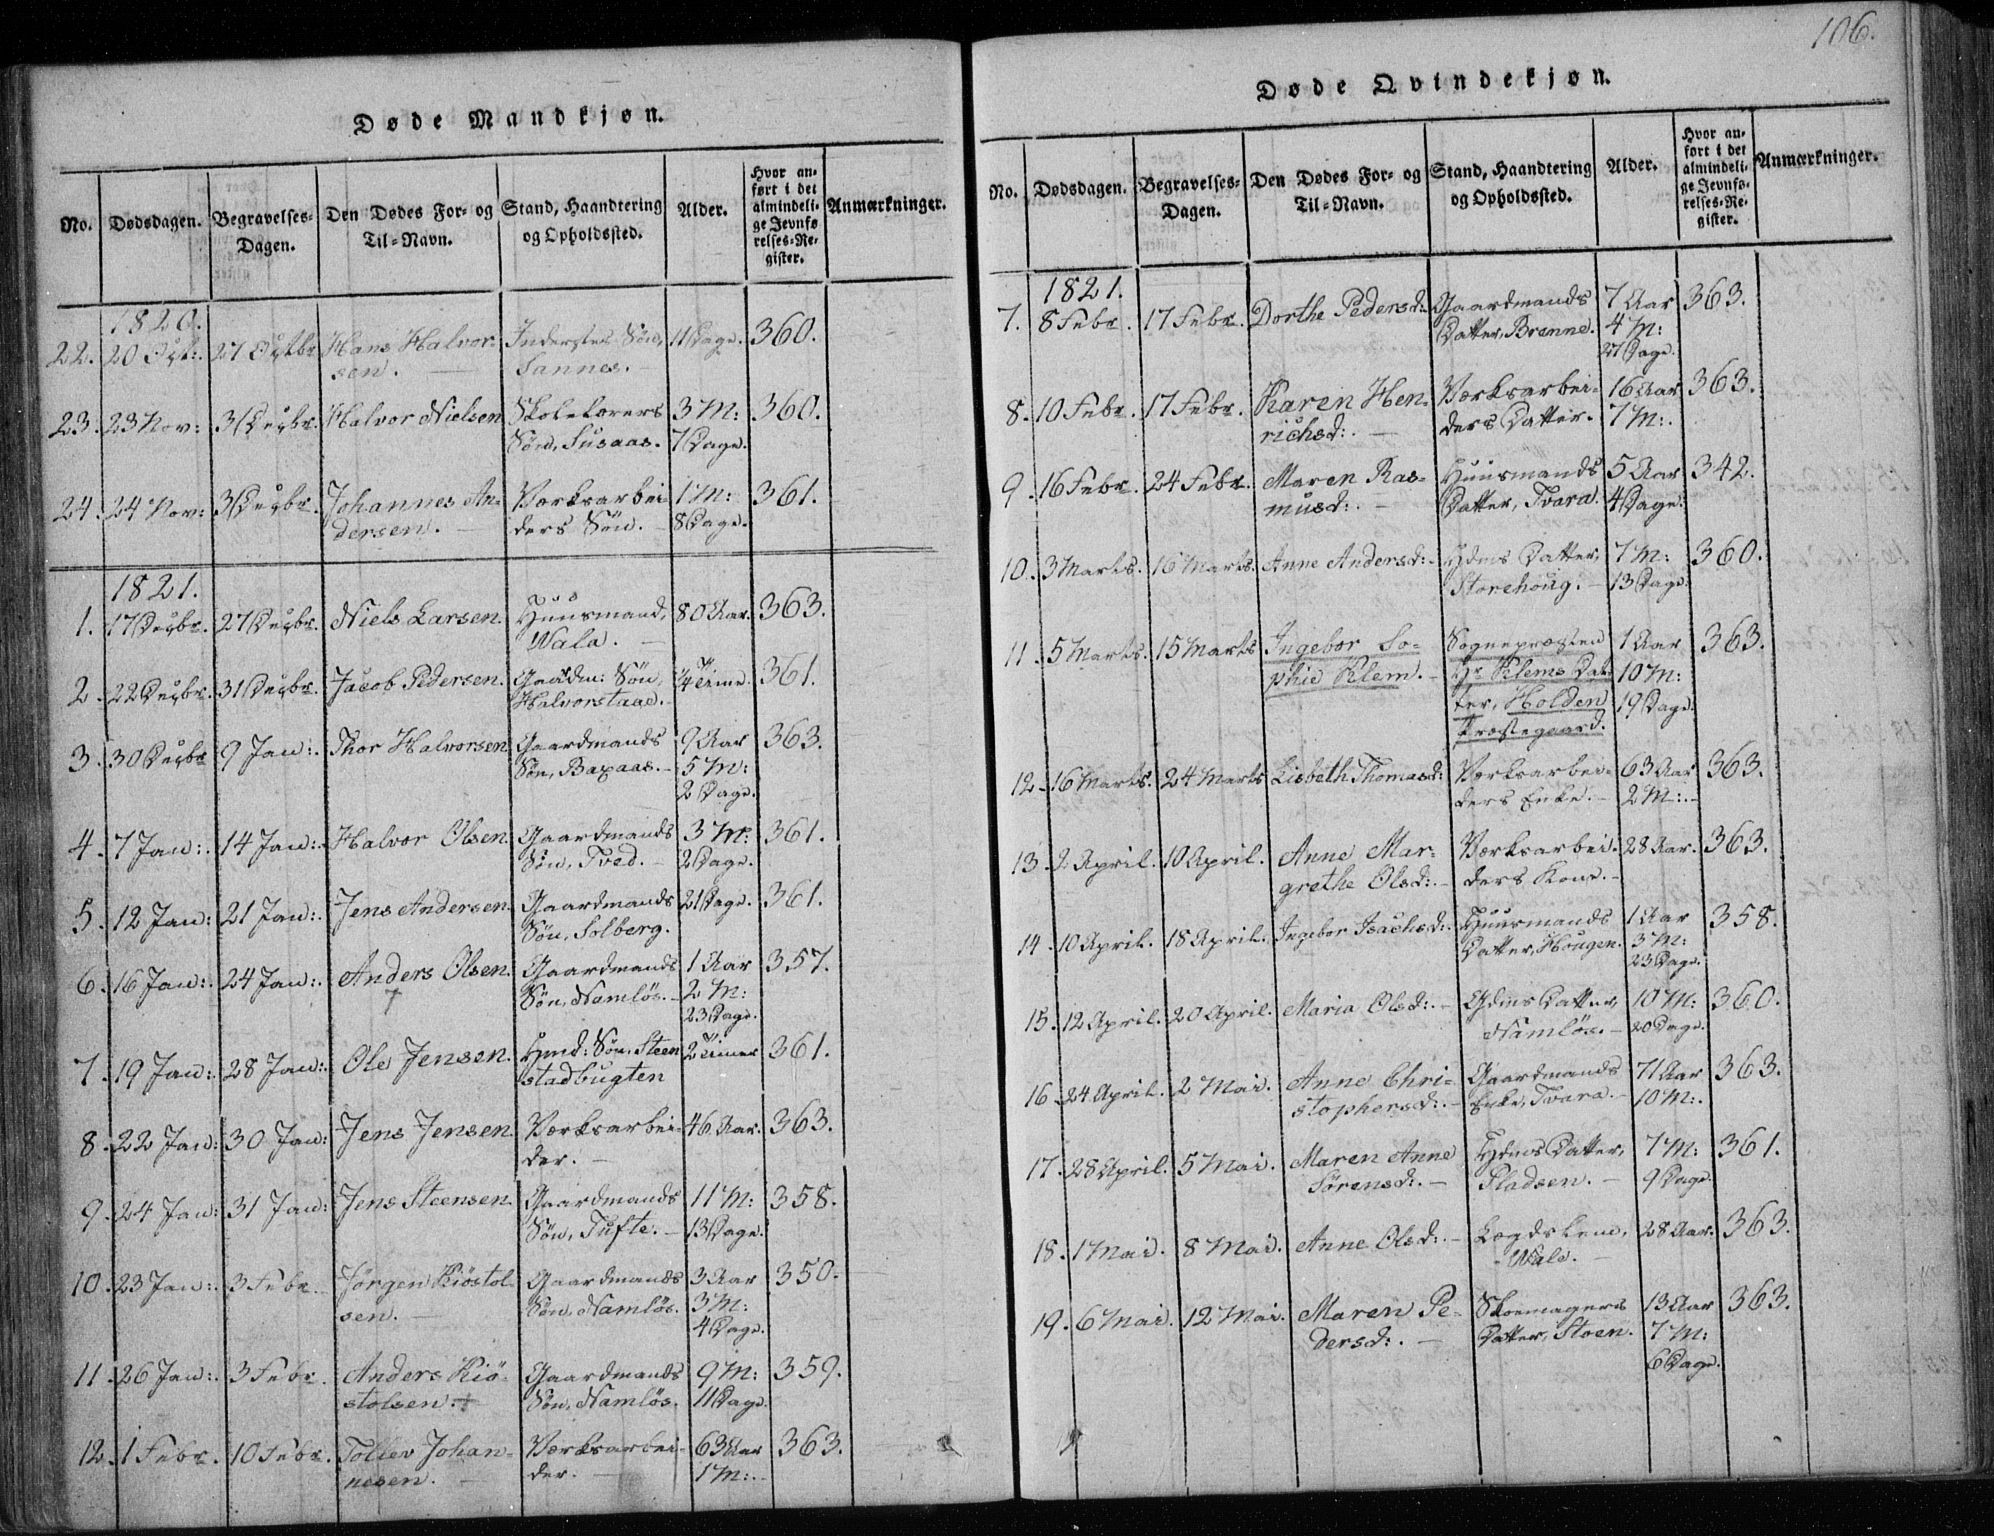 106.
Døde Mandkjøn.
No. Dødsdagen. Begravelses-Dagen. Den Dødes For- og Til-Navn. Stand, Haandtering og Opholdssted. Alder. Hvor anført i det almindelige Jevnførelses-Register. Anmærkninger.
1820.
22. 20 Oct:. 27 Octbr Hans Halvor- Inderstes Søn, 11 Dage. 360.
sen. Sannes.
23. 23 Nov: 3 Decbr. Halvor Nielsen Skolelærers 3 M: 360.
Søn, Susaas. 7 Dage.
24. 24 Nov: 3 Decbr. Johannes An- Værksarbei- 1 M: 361.
dersen. ders Søn. 8 Dage.
1821.
1. 17 Decbr. 27 Decbr. Niels Larsen. Huusmand, 80 Aar. 363.
Wala.
2. 22 Decbr. 31 Decbr. Jacob Pedersen. Gaardm: Søn, 1/4 Time. 361.
Halvorstaae.
3. 30 Decbr 9 Jan:. Thor Halvorsen Gaardmands 9 Aar 363.
Søn, Baxaas. 5 M:
2 Dage.
4. 7 Jan:. 14 Jan:. Halvor Olsen. Gaardmands 3 M: 361.
Søn, Tved. 2 Dage.
5. 12 Jan: 21 Jan:. Jens Andersen. Gaardmands 21 Dage. 361.
Søn, Solberg.
6. 16 Jan:. 24 Jan:. Anders Olsen. Gaardmands 1 Aar 357.
Søn, Namløs. 2 M:
23 Dage.
7. 19 Jan:. 28 Jan:. Ole Jensen. Hmd: Søn, Steen 2 Timer 361.
stadbugten
8. 22 Jan: 30 Jan: Jens Jensen. Værksarbei- 46 Aar. 363.
der.
9. 24 Jan: 31 Jan: Jens Steensen. Gaardmands 11 M: 358.
Søn, Tufte. 13 Dage.
10. 23 Jan:. 3 Febr. Jørgen Kiöstol- Gaardmands 3 Aar 350.
sen. Søn, Namløs. 3 M:
4 Dage.
11. 26 Jan:. 3 Febr. Anders Kiö- Gaardmands 9 M: 359.
stolsen. + Søn, Namløs. 11 Dage.
12. 1 Febr. 10 Febr. Tollev Johan- Værksarbei- 63 Aar 363.
nesen. der. 1 M:.
Døde Qvindekjøn.
No. Dødsdagen. Begravelses-Dagen. Den Dødes For- og Til-Navn. Stand, Haandtering og Opholdssted. Alder. Hvor anført i det almindelige Jevnførelses-Register. Anmærkninger.
1821.
7. 8 Febr. 17 Febr. Dorthe Pedersd: Gaardmands 7 Aar 363.
Datter, Brenne. 4 M:
27 Dage.
8. 10 Febr. 17 Febr. Karen Hen- Værksarbei- 16 Aar 363.
richsd:. ders Datter. 7 M:.
9. 16 Febr. 24 Febr. Maren Ras- Huusmands 5 Aar 342.
musd:. Datter, Tvara. 4 Dage.
10. 3 Marts. 16 Marts. Anne Andersd:. Hdms Datter, 7 M: 360.
Storehoug. 13 Dage.
11. 5 Marts. 15 Marts Ingebor So- Sognepræsten 1 Aar 363.
phie Klem. Hr Klems Dat- 10 M:
ter, Holden 19 Dage.
Præstegaard.
12. 16 Marts. 24 Marts Lisbeth Thomasd: Værksarbei- 63 Aar 363.
ders Enke. 2 M:.
13. 2 April. 10 April. Anne Mar- Værksarbei- 28 Aar. 363.
grethe Olsd:. ders Kone.
14. 10 April. 18 April. Ingebor Isachsd:. Huusmands 1 Aar 358.
Datter, Hougen. 3 M:
23 Dage.
15. 12 April. 20 April. Maria Olsd:. Gdms Datter, 10 M: 360.
Namløs. 20 Dage.
16. 24 April. 2 Mai. Anne Chri- Gaardmands 71 Aar 363.
stophersd:. Enke, Tvara. 10 M:.
17. 28 April. 5 Mai. Maren Anne Hdms Datter, 7 M: 361.
Sörensd:. Pladsen. 9 Dage.
18. 1 Mai. 8 Mai. Anne Olsd:. Lægdslem, 28 Aar. 363.
Wale.
19. 6 Mai. 12 Mai. Maren Pe- Skomagers 13 Aar 363.
dersd:. Datter, Stoen. 7 M:
6 Dage.